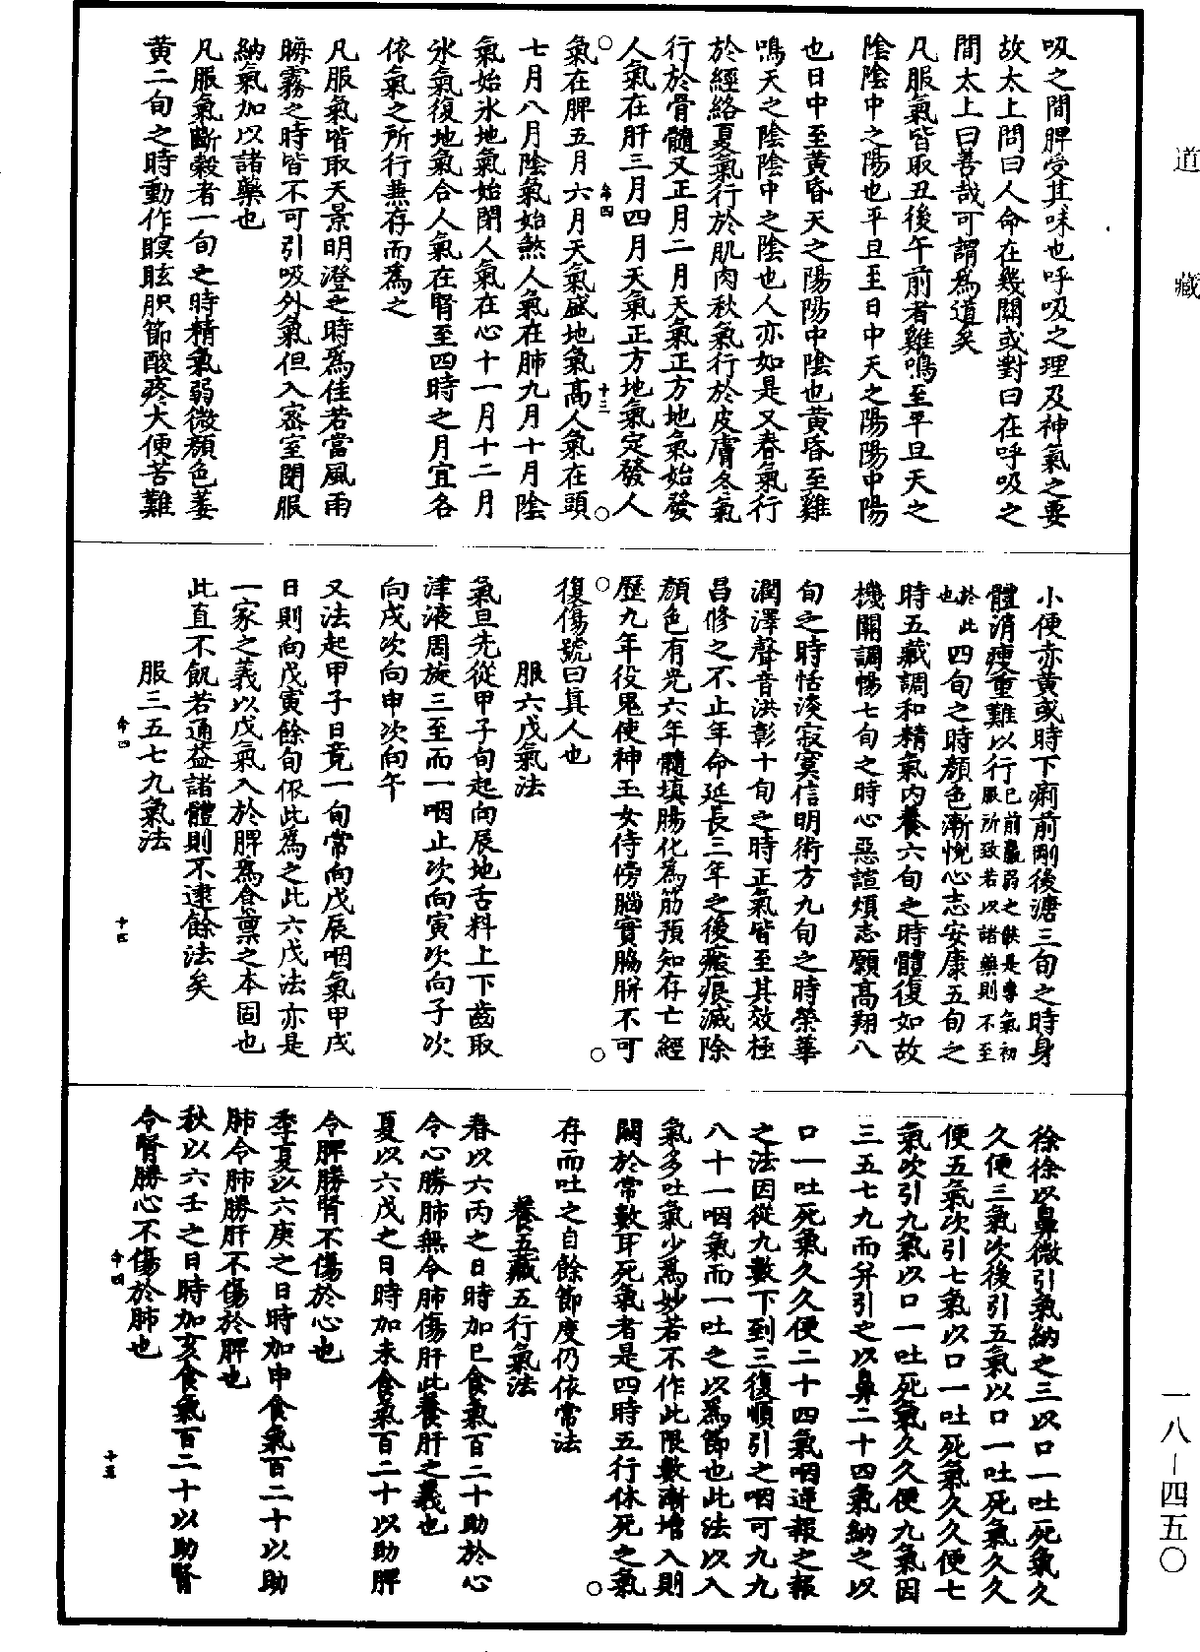 道藏
吸之間脾受其味也呼吸之理及神氣之要
故太上問曰人命在幾間或對曰在呼吸之
間太上曰善哉可謂爲道矣
凡服氣皆取丑後午前者雞鳴至平旦天之
陰陰中之陽也平旦至日中天之陽陽中陽
也日中至黃昏天之陽陽中陰也黃昏至雞
鳴天之陰陰中之陰也人亦如是又春氣行
於經絡夏氣行於肌肉秋氣行於皮膚冬氣
行於骨髓又正月二月天氣正方地氣始發
人氣在肝三月四月天氣正方地氣定發人
命四 十三
氣在脾五月六月天氣盛地氣高人氣在頭
七月八月陰氣始煞人氣在肺九月十月陰
氣始氷地氣始閉人氣在心十一月十二月
氷氣復地氣合人氣在腎至四時之月宜各
依氣之所行兼存而爲之
凡服氣皆取天景明澄之時爲佳若當風雨
晦霧之時皆不可引吸外氣但入密室閉服
納氣加以諸藥也
凡服氣斷穀者一旬之時精氣弱微顏色萎
黃二旬之時動作瞑眩肢節酸疼大便苦難
小便赤黃或時下痢前剛後溏三旬之時身
體消瘦重難以行已前羸弱之候是專氣初服所致若以諸藥則不至
於此也四旬之時顏色漸悅心志安康五旬之
時五藏調和精氣内養六旬之時體復如故
機關調暢七旬之時心惡諠煩志願高翔八
旬之時恬淡寂寞信明術方九旬之時榮華
潤澤聲音洪彰十旬之時正氣皆至其效極
昌修之不止年命延長三年之後瘢痕滅除
顏色有光六年髓填腸化爲筋預知存亡經
歷九年役鬼使神玉女侍傍腦實脇胼不可
復傷號曰真人也
服六戊氣法
氣旦先從甲子旬起向辰地舌料上下齒取
津液周旋三至而一咽止次向寅次向子次
向戌次向申次向午
又法起甲子日竟一旬常向戊辰咽氣甲戌
日則向戊寅餘旬依此爲之此六戊法亦是
一家之義以戊氣入於脾爲食稟之本固也
此直不飢若通益諸體則不逮餘法矣
服三五七九氣法
命四 十四
徐徐以鼻微引氣納之三以口一吐死氣久
久便三氣次後引五氣以口一吐死氣久久
便五氣次引七氣以口一吐死氣久久便七
氣次引九氣以口一吐死氣久久便九氣因
三五七九而并引之以鼻二十四氣納之以
口一吐死氣久久便二十四氣咽逆報之報
之法因從九數下到三復順引之咽可九九
八十一咽氣而一吐之以爲節也此法以入
氣多吐氣少爲妙若不作此限數漸增入則
闕於常數耳死氣者是四時五行休死之氣
存而吐之自餘節度仍依常法
養五藏五行氣法
春以六丙之日時加巳食氣百二十助於心
令心勝肺無令肺傷肝此養肝之義也
夏以六戊之日時加未食氣百二十以助脾
令脾勝腎不傷於心也
季夏以六庚之日時加申食氣百二十以助
肺令肺勝肝不傷於脾也
秋以六壬之日時加亥食氣百二十以助腎
令腎勝心不傷於肺也
命四 十五
一八－四五〇